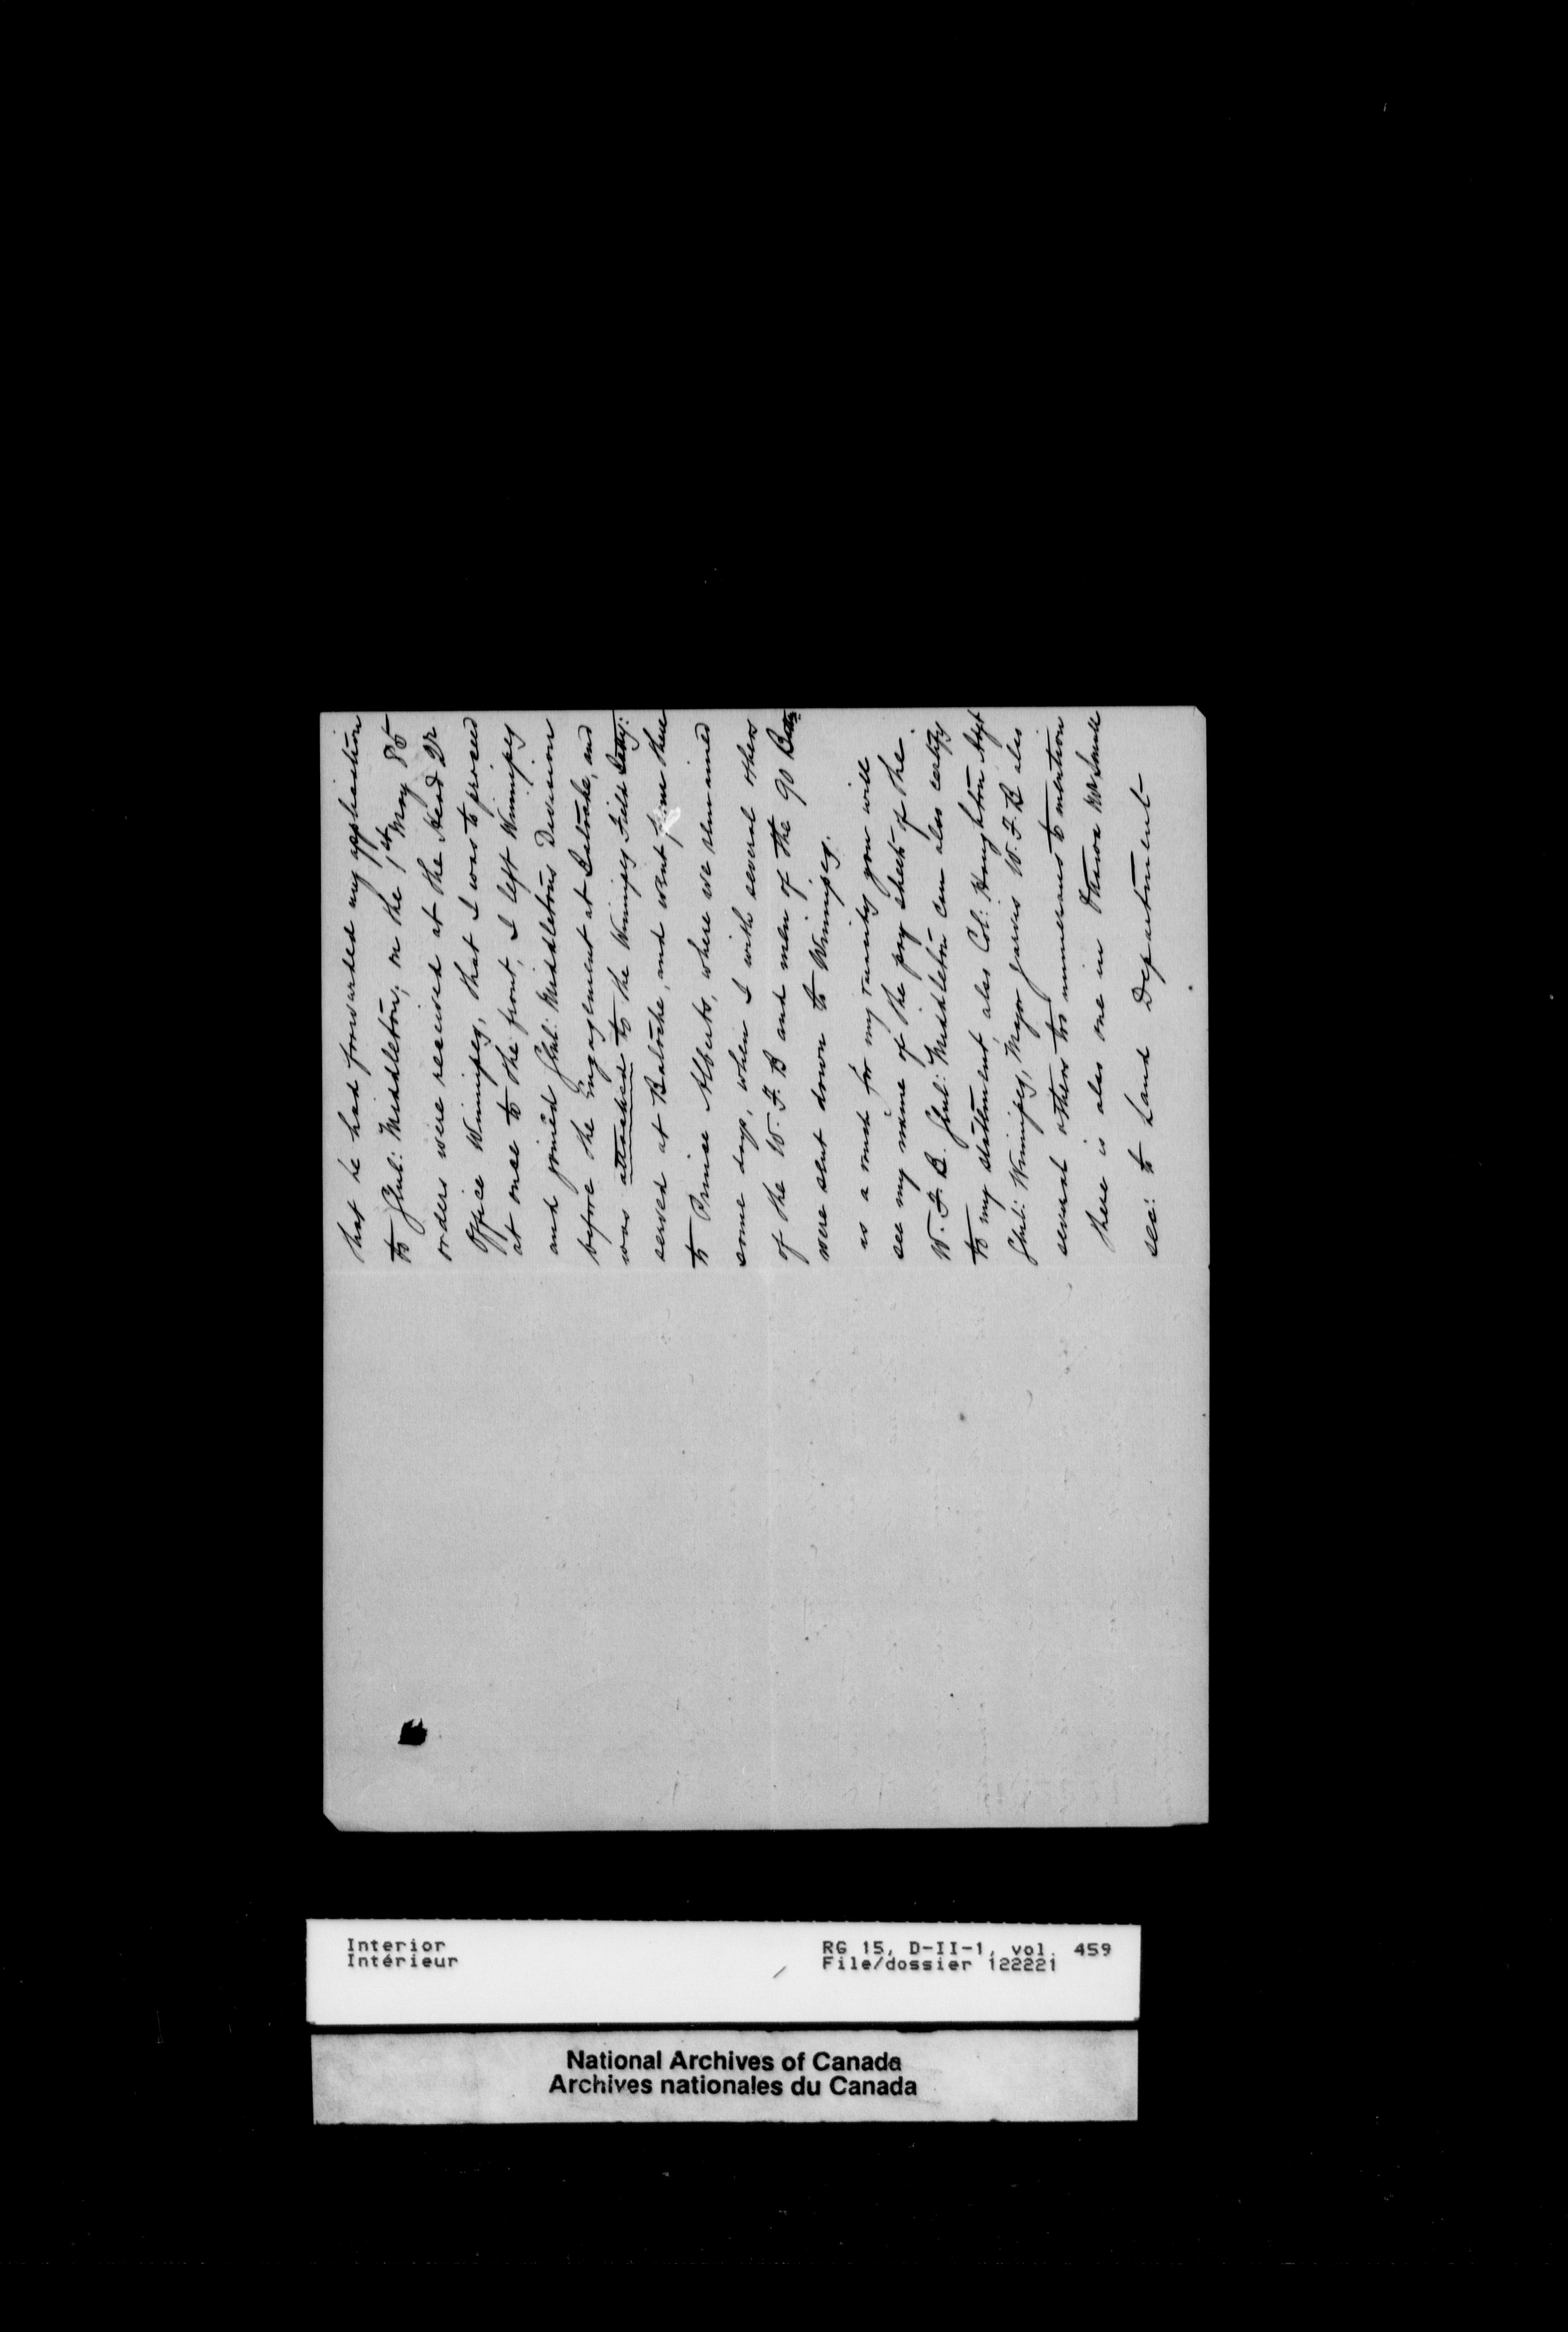 that he had forwarded my application
to Genl: Middleton, on the 1st May 85
orders were received at the Head Qr
Office Winnipeg, that I was to proceed
at once to the front, I left Winnipeg
and joined Genl: Middletons Division
before the Engagement at Batoche, and
was attached to the Winnipeg Field Baty:
served at Batoche, and went from there
to Prince Alberts, where we remained
some days, when I with several others
of the W. F. B and men of the 90 Battn
were sent down to Winnipeg.
as a vouch for my you will
see my name of the pay sheets of the
W. F. B. Genl: Middleton can also certify
to my statement, also Col: Houghton Agt
Genl: Winnipeg, Major Jarvis W. F. B also
several others too numerous to mention
there is also one in Ottawa
sec: to Land Department
Interior
Intérieur
RG 15, D-II-1, vol. 459
File/dossier 122221
National Archives of Canada
Archives nationales du Canada